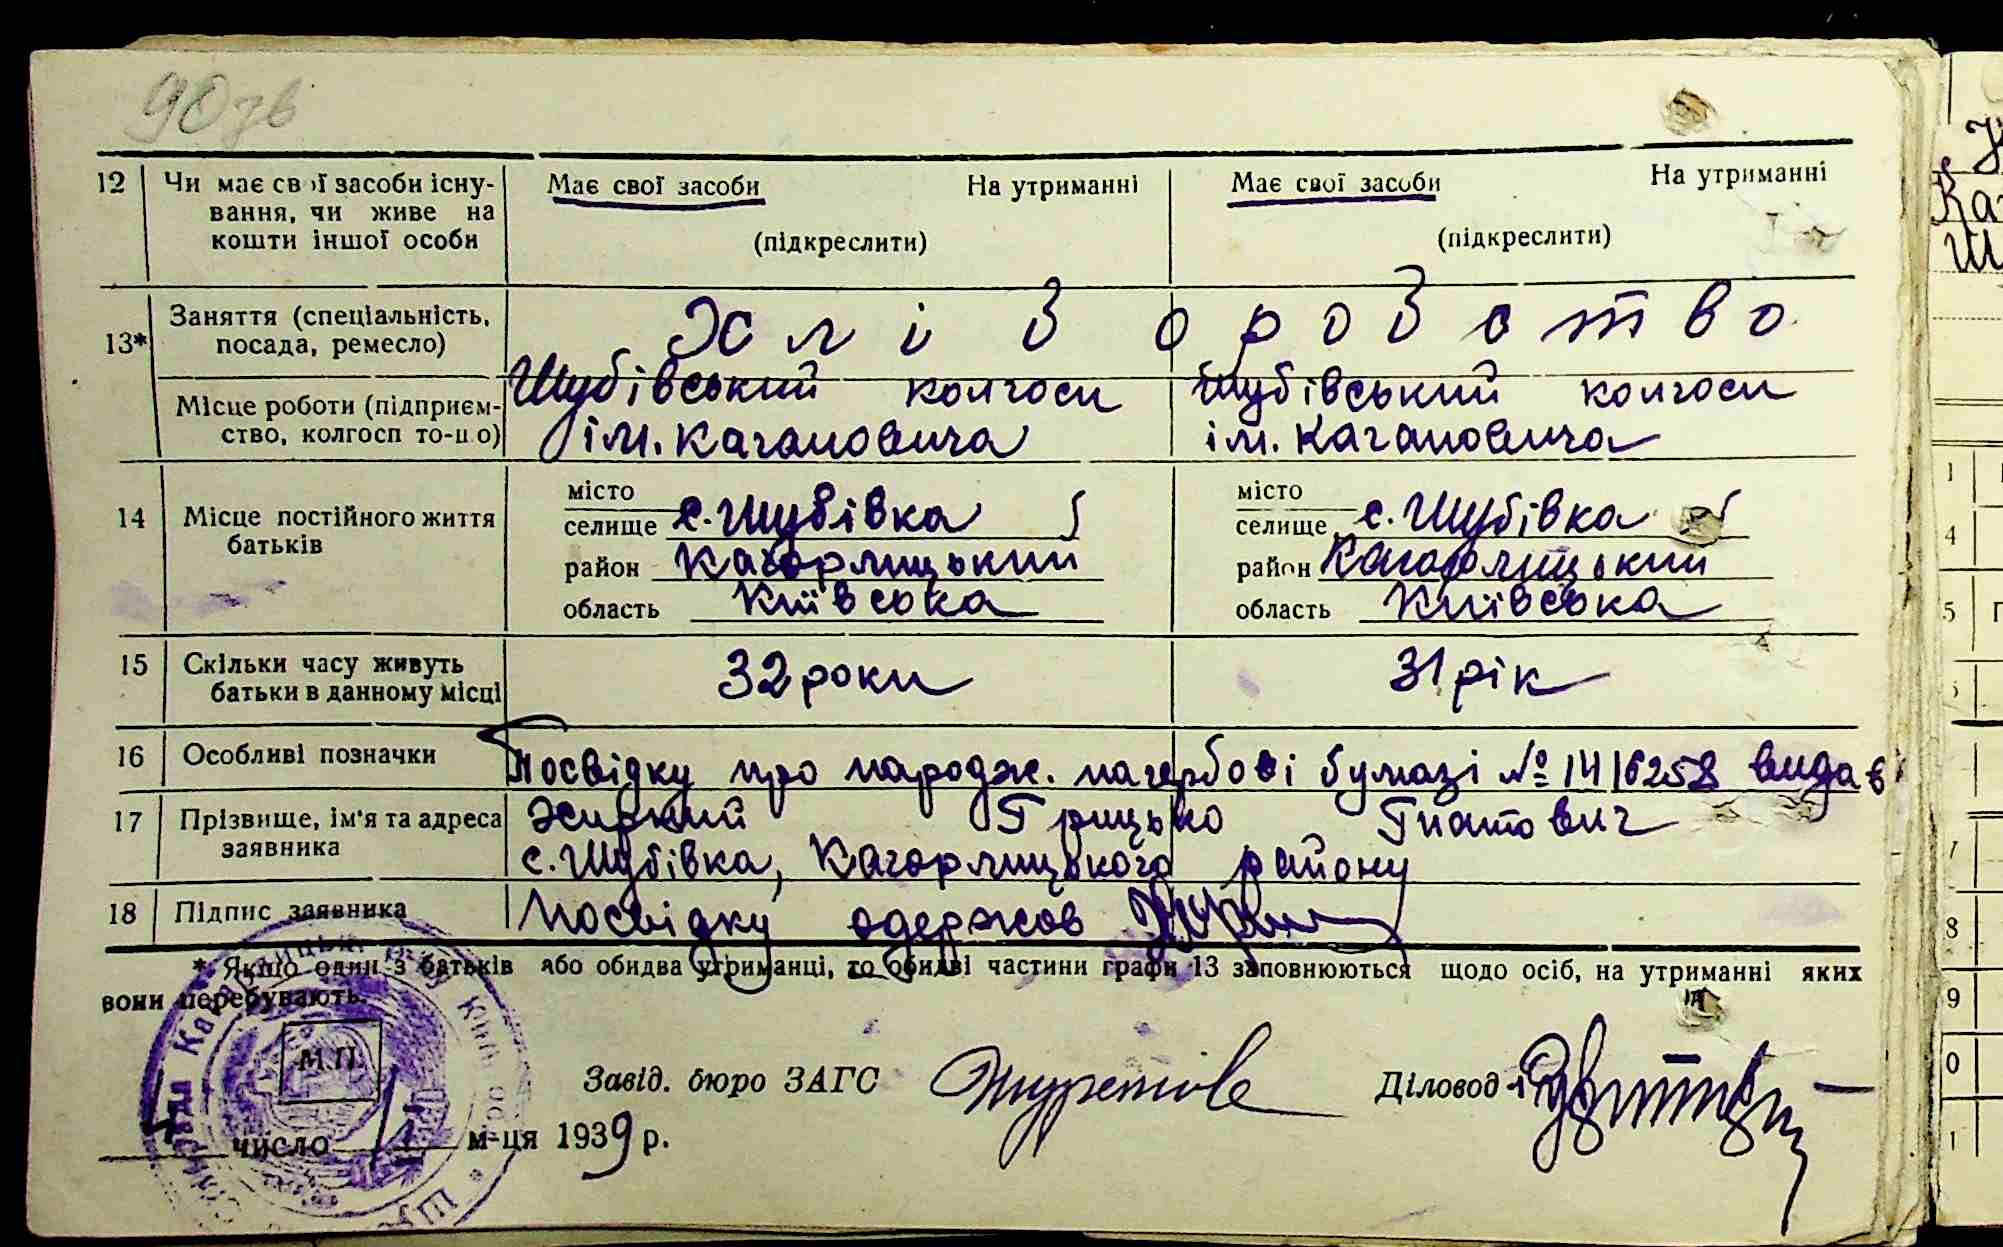 90 зв
12 Чи має свої засоби існу- Має свої засоби На утриманні Має свої засоби На утриманні
вання, чи живе на
кошти іншої особи (підкреслити) (підкреслити)
13* Заняття (спеціальність, Х л і б о р о б с т в о
посада, ремесло)
Місце роботи (підприєм- Шубівський колгосп Шубівський колгосп
ство, колгосп то-що) ім. Кагановича ім. Кагановича
14 Місце постійного життя місто місто
батьків селище с. Шубівка селище с. Шубівка
район Кагорлицький район Кагорлицький
область Київська область Київська
15 Скільки часу живуть 32 роки 31 рік
батьки в данному місці
16 Особливі позначки Посвідку про народж. на гербові бумазі № 1416258 видав
17 Прізвище, ім'я та адреса Жиркий Грицько Гнатович
заявника с. Шубівка, Кагорлицького району
18 Підпис заявника Посвідку одержов
* Якщо один з батьків або обидва утриманці, то обидві частини графи 13 заповнюються щодо осіб, на утриманні яких
вони перебувають.
М.П.
Завід. бюро ЗАГС Діловод
число м-ця 1939 р.